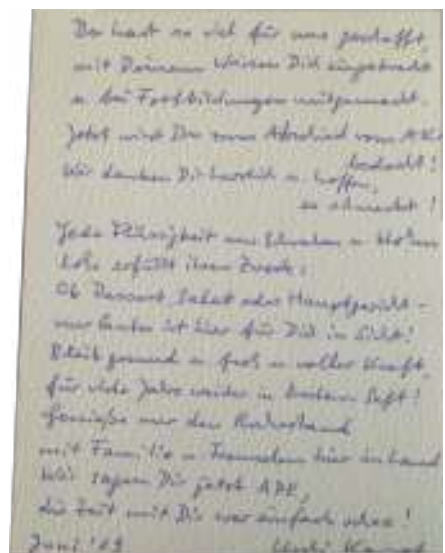 Du hast so viel für uns geschafft,
mit Deinem Wissen Dich eingebracht
u. bei Fortbildungen mitgemacht.
Jetzt wirst Du zum Abschied vom
bedacht!
Wir danken Dir herzlich u. hoffen,
es schmeckt!
Jede Flüssigkeit aus Schwaben u. Hohen
lohe erfüllt ihren Zweck:
Ob Dessert, Salat oder Hauptgericht -
nur Gutes ist hier für Dich in Sicht!
Bleib gesund u. froh u. voller Kraft,
für viele Jahre weiter in bestem Saft!
Genieße nur den Ruhestand
mit Familie u. Freunden hier im Land
Wir sagen Dir jetzt ADE,
die Zeit mit Dir war einfach schee!
Juni '09